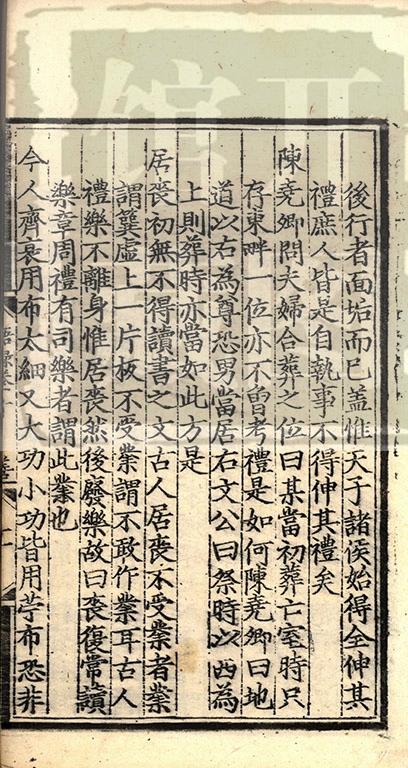 後行者面垢而已盖惟天子諸侯始得全伸其
禮庶人皆是自執事不得伸其禮矣
陳堯卿問夫婦合葬之位曰某當初葬亡室時只
存東畔一位亦不曾考禮是如何陳堯卿曰地
道以右為尊恐男當居右文公曰祭時以西為
上則葬時亦當如此方是
居喪初無不得讀書之文古人居喪不受業者業
謂簨虛上一片板不受業謂不敢作業耳古人
禮樂不離身惟居喪然後廢樂故曰喪復常讀
樂章周禮有司樂者謂此業也
今人齊衰用布太細又大功小功皆用苧布恐非